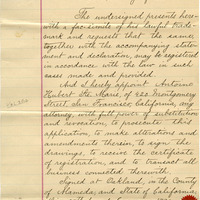 The undersigned presents here-
with a fac-simile of his lawful trade-
mark and requests that the same,
together with the accompanying state-
ment and declaration, may be registered
in accordance with the law in such
cases made and provided.
And I hereby appoint Antoine
Hubert Ste. Marie, of 528 Montgomery
Street, San Francisco, California, my
attorney, with full power of substitution
and revocation, to prosecute this
application, to make alterations and
amendments therein, to sign the
drawings, to receive the certificate
of registration, and to transact all
business connected therewith.
Signed at Oakland, in the County
of Alameda, and State of California,